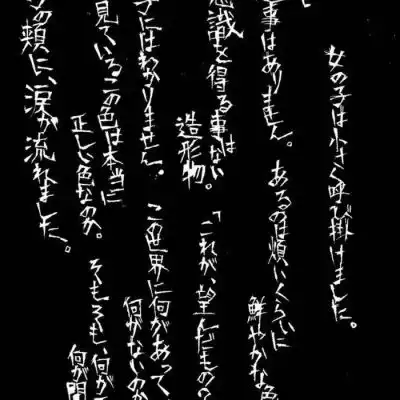 女の子は小さく呼び掛けました。
事はありません。
あるのは煩いくらいに
鮮やかな色
意識を得る事は
ない
造形物。
「これが、望んだもの?
子にはわかりません。
この世界に何があって、
何がないのか
見ている、この色は本当に
正しい色なのか。
そもそも、何が
何が間
の頬に、涙が流れました。